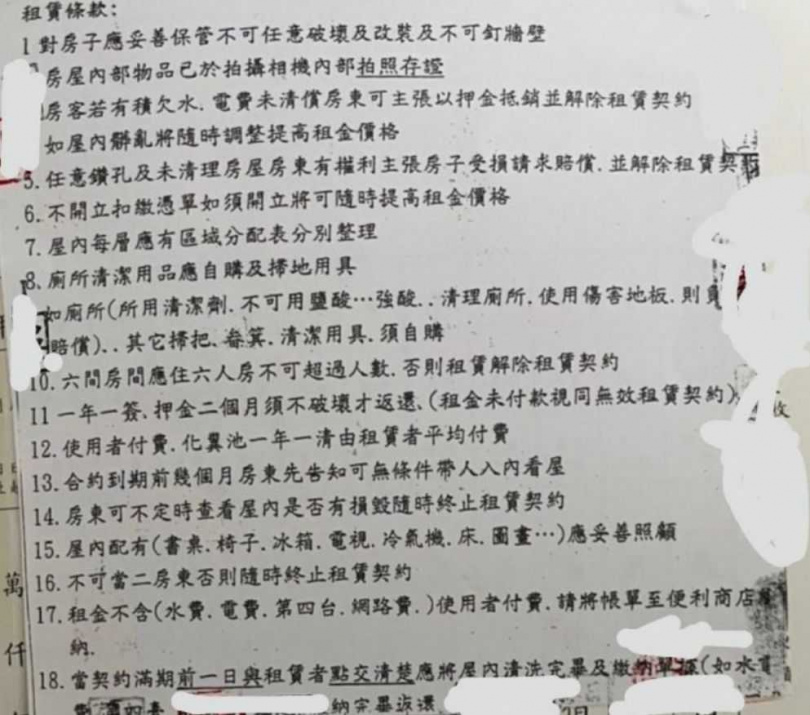 租賃條款:
1 對房子應妥善保管不可任意破壞及改裝及不可釘牆壁
房屋內部物品已於拍攝相機內部拍照存證
房客若有積欠水.電費未清償房東可主張以押金抵銷並解除租賃契約
如屋內髒亂將隨時調整提高租金價格
5.任意鑽孔及未清理房屋房東有權利主張房子受損請求賠償.並解除租賃契
6.不開立扣繳憑單如須開立將可隨時提高租金價格
7.屋內每層應有區域分配表分別整理
8、廁所清潔用品應自購及掃地用具
如廁所(所用清潔劑.不可用鹽酸…強酸..清理廁所.使用傷害地板.則
賠償)..其它掃把、畚箕.清潔用具.須自購
10.六間房間應住六人房不可超過人數.否則租賃解除租賃契約
11 一年一簽、押金二個月須不破壞才返還、(租金未付款視同無效租賃契約)
收
12.使用者付費.化糞池一年一清由租賃者平均付費
13.合約到期前幾個月房東先告知可無條件帶人入內看屋
14.房東可不定時查看屋內是否有損毀隨時終止租賃契約
15.屋內配有(書桌.椅子.冰箱.電視.冷氣機.床.圖畫…)應妥善照顧
16.不可當二房東否則隨時終止租賃契約
萬
17.租金不含(水費.電費.第四台.網路費.)使用者付費.請將帳單至便利商店
仟
納.
18.當契約滿期前一日與租賃者點交清楚應將屋內清洗完畢及繳納單據(如水
納完畢返還